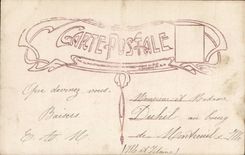 CARTE POSTALE
Que devinez vous.
Baisers
Monsieur et Madame
Duhil au bourg
de Montreuil s. Ille
(Ille et Vilaine)